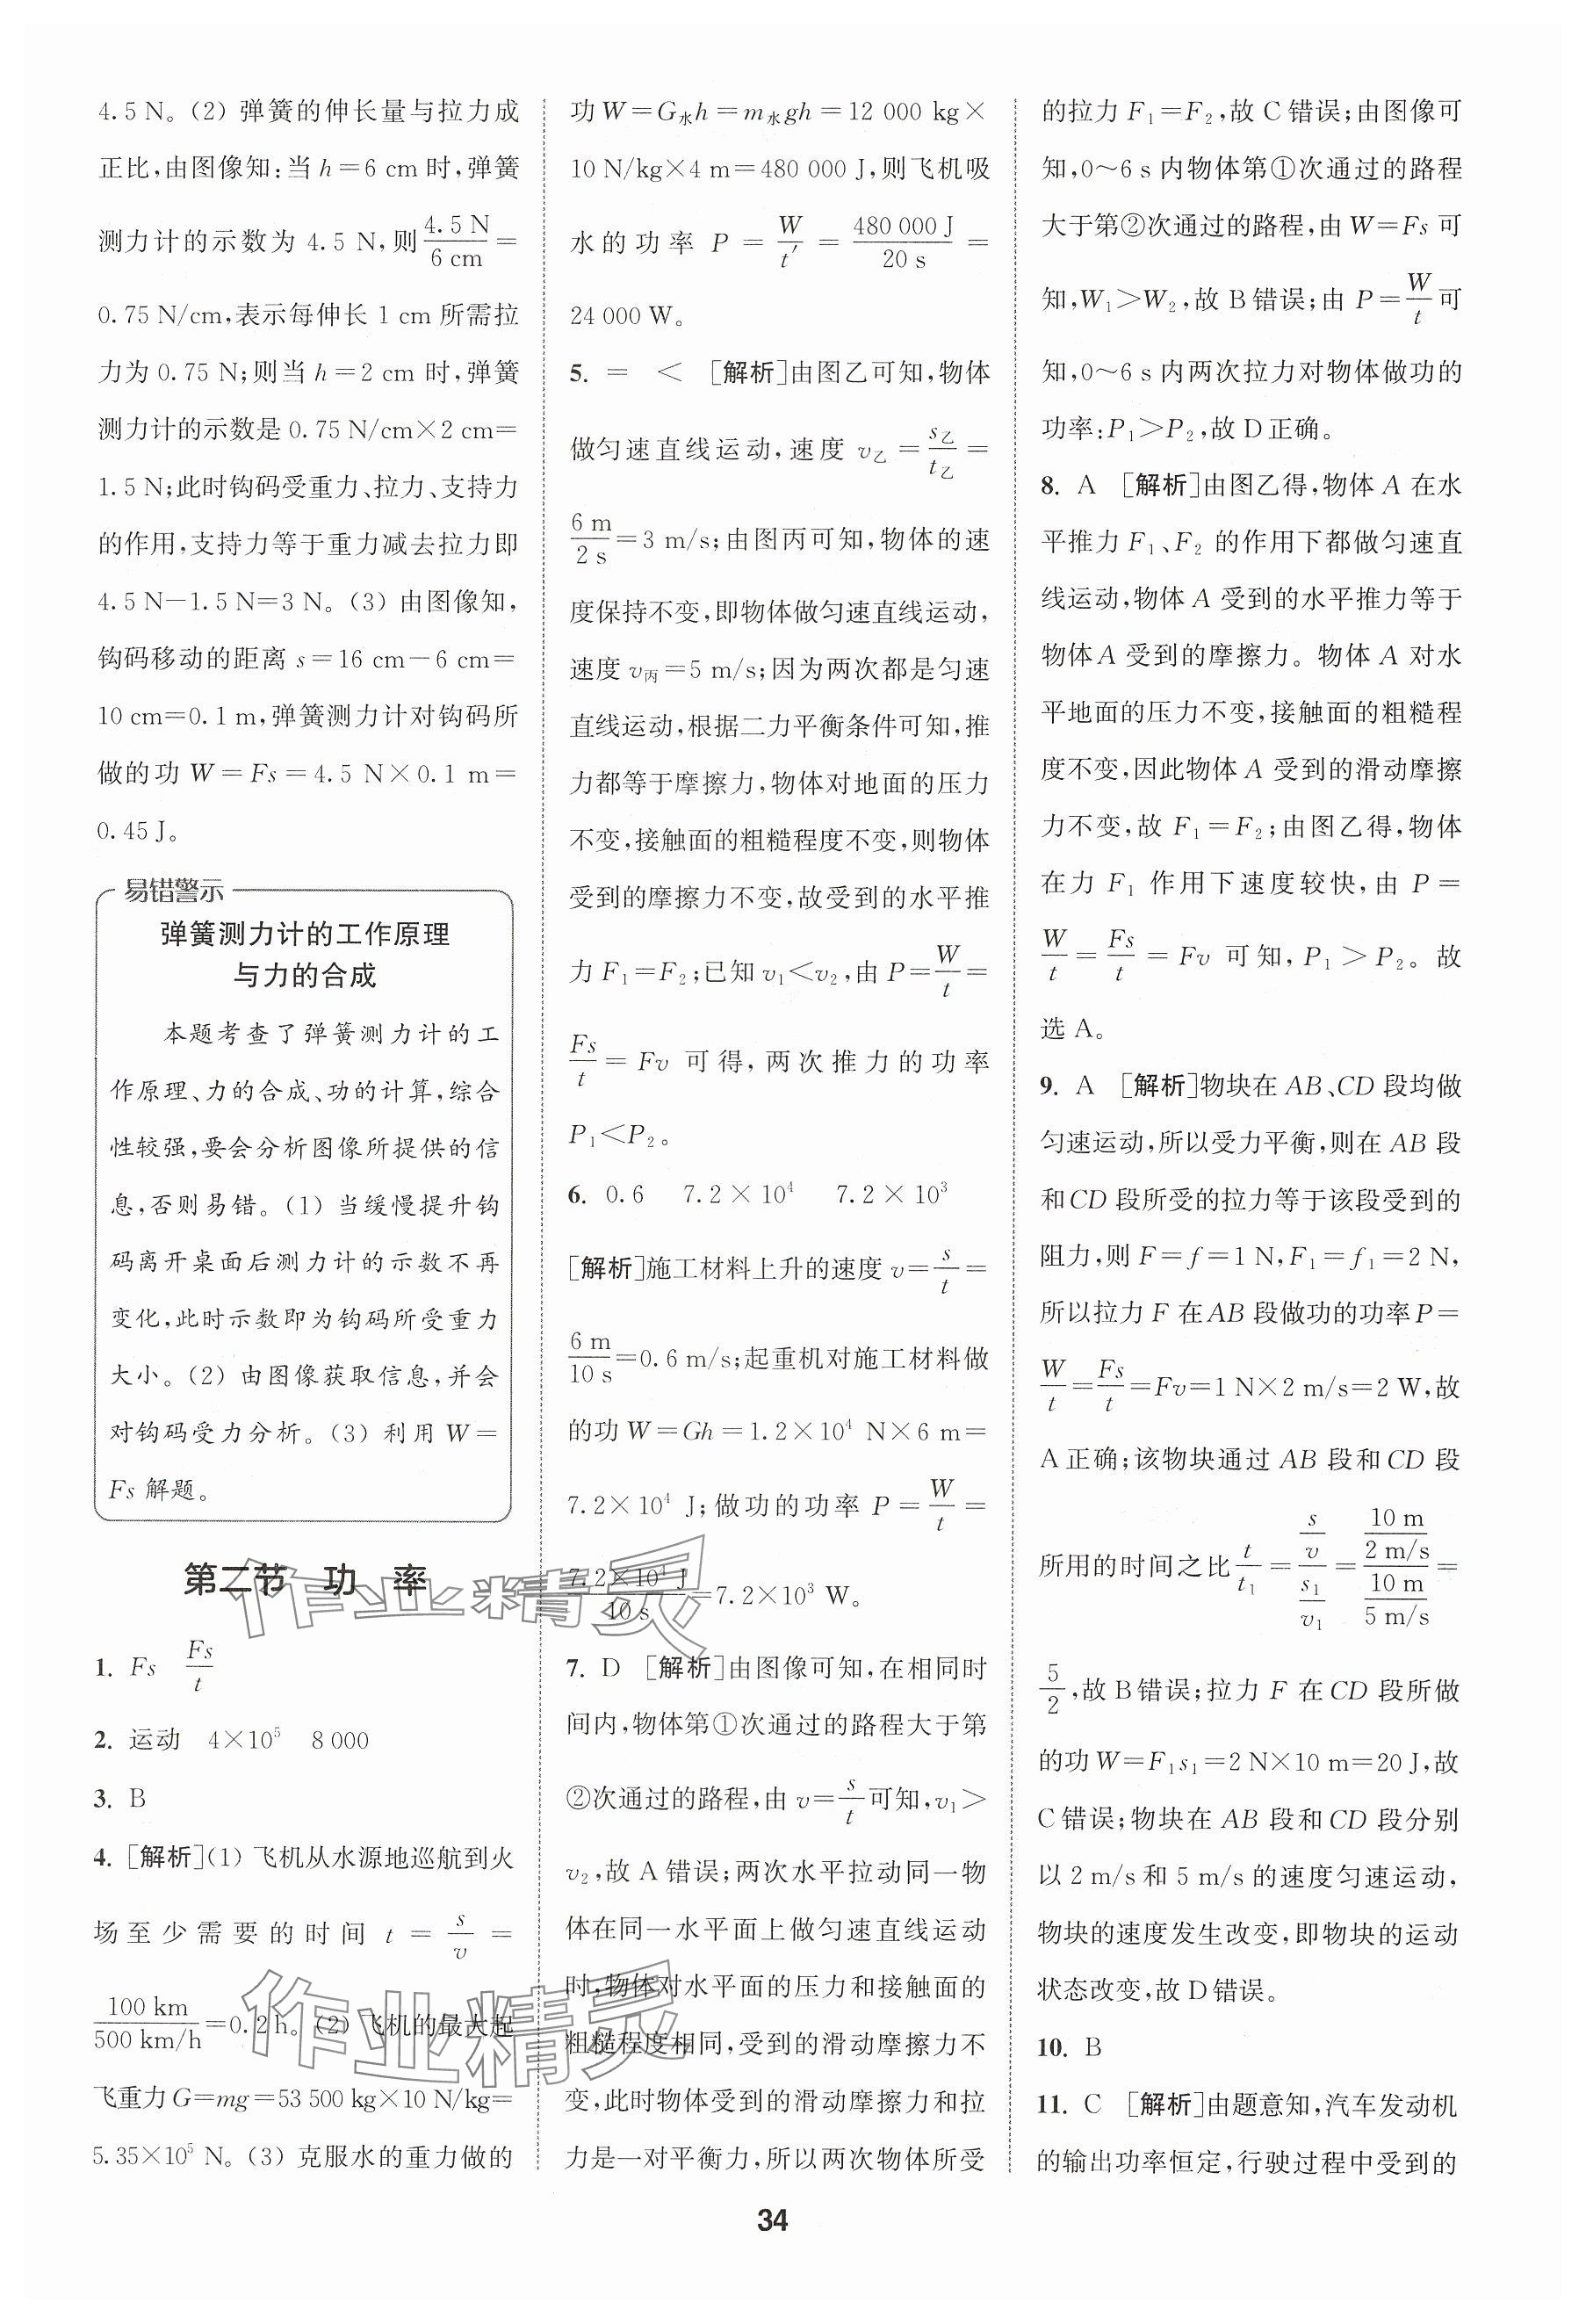 4.5 N。(2) 弹簧的伸长量与拉力成
正比,由图像知:当 h=6 cm 时,弹簧
测力计的示数为 4.5 N,则 4.5 N/6 cm =
0.75 N/cm,表示每伸长 1 cm 所需拉
力为 0.75 N;则当 h=2 cm 时,弹簧
测力计的示数是 0.75 N/cm×2 cm=
1.5 N;此时钩码受重力、拉力、支持力
的作用,支持力等于重力减去拉力即
4.5 N-1.5 N=3 N。(3) 由图像知,
钩码移动的距离 s=16 cm-6 cm=
10 cm=0.1 m,弹簧测力计对钩码所
做的功 W=Fs=4.5 N×0.1 m=
0.45 J。
易错警示
弹簧测力计的工作原理
与力的合成
本题考查了弹簧测力计的工
作原理、力的合成、功的计算,综合
性较强,要会分析图像所提供的信
息,否则易错。(1) 当缓慢提升钩
码离开桌面后测力计的示数不再
变化,此时示数即为钩码所受重力
大小。(2) 由图像获取信息,并会
对钩码受力分析。(3) 利用 W=
Fs 解题。
第二节 功 率
1. Fs Fs/t
2. 运动 4×10⁵ 8 000
3. B
4. [解析](1) 飞机从水源地巡航到火
场至少需要的时间 t = s/v =
100 km/500 km/h=0.2 h。(2) 飞机的最大起
飞重力 G=mg=53 500 kg×10 N/kg=
5.35×10⁵ N。(3) 克服水的重力做的
功 W=G水h=m水gh=12 000 kg×
10 N/kg×4 m=480 000 J,则飞机吸
水的功率 P = W/t′ = 480 000 J/20 s =
24 000 W。
5. = < [解析]由图乙可知,物体
做匀速直线运动,速度 v乙 = s乙/t乙 =
6 m/2 s=3 m/s;由图丙可知,物体的速
度保持不变,即物体做匀速直线运动,
速度 v丙=5 m/s;因为两次都是匀速
直线运动,根据二力平衡条件可知,推
力都等于摩擦力,物体对地面的压力
不变,接触面的粗糙程度不变,则物体
受到的摩擦力不变,故受到的水平推
力 F₁=F₂;已知 v₁<v₂,由 P=W/t=
Fs/t = Fv 可得,两次推力的功率
P₁<P₂。
6. 0.6 7.2×10⁴ 7.2×10³
[解析]施工材料上升的速度 v=s/t=
6 m/10 s=0.6 m/s;起重机对施工材料做
的功 W=Gh=1.2×10⁴ N×6 m=
7.2×10⁴ J;做功的功率 P=W/t=
7.2×10⁴ J/10 s=7.2×10³ W。
7. D [解析]由图像可知,在相同时
间内,物体第①次通过的路程大于第
②次通过的路程,由 v=s/t可知,v₁>
v₂,故 A 错误;两次水平拉动同一物
体在同一水平面上做匀速直线运动
时,物体对水平面的压力和接触面的
粗糙程度相同,受到的滑动摩擦力不
变,此时物体受到的滑动摩擦力和拉
力是一对平衡力,所以两次物体所受
的拉力 F₁=F₂,故 C 错误;由图像可
知,0～6 s 内物体第①次通过的路程
大于第②次通过的路程,由 W=Fs 可
知,W₁>W₂,故 B 错误;由 P=W/t可
知,0～6 s 内两次拉力对物体做功的
功率:P₁>P₂,故 D 正确。
8. A [解析]由图乙得,物体 A 在水
平推力 F₁、F₂ 的作用下都做匀速直
线运动,物体 A 受到的水平推力等于
物体 A 受到的摩擦力。物体 A 对水
平地面的压力不变,接触面的粗糙程
度不变,因此物体 A 受到的滑动摩擦
力不变,故 F₁=F₂;由图乙得,物体
在力 F₁ 作用下速度较快,由 P =
W/t = Fs/t = Fv 可知,P₁>P₂。故
选 A。
9. A [解析]物块在 AB、CD 段均做
匀速运动,所以受力平衡,则在 AB 段
和 CD 段所受的拉力等于该段受到的
阻力,则 F=f=1 N,F₁=f₁=2 N,
所以拉力 F 在 AB 段做功的功率 P=
W/t=Fs/t=Fv=1 N×2 m/s=2 W,故
A 正确;该物块通过 AB 段和 CD 段
所用的时间之比 t/t₁ = (s/v)/(s₁/v₁) = (10 m/2 m/s)/(10 m/5 m/s) =
5/2,故 B 错误;拉力 F 在 CD 段所做
的功 W=F₁s₁=2 N×10 m=20 J,故
C 错误;物块在 AB 段和 CD 段分别
以 2 m/s 和 5 m/s 的速度匀速运动,
物块的速度发生改变,即物块的运动
状态改变,故 D 错误。
10. B
11. C [解析]由题意知,汽车发动机
的输出功率恒定,行驶过程中受到的
34
作业精灵
作业精灵